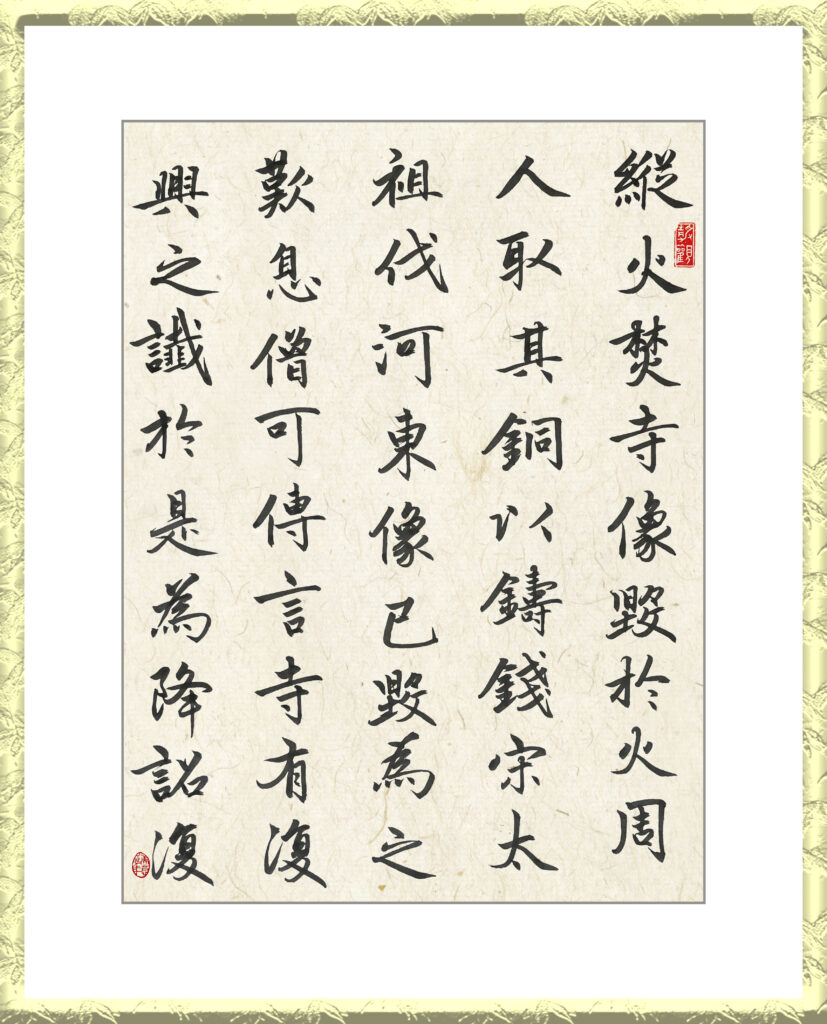 縱火焚寺像毀於火周
人取其銅以鑄錢宋太
祖伐河東像已毀為之
歎息僧可傳言寺有復
興之讖於是為降詔復